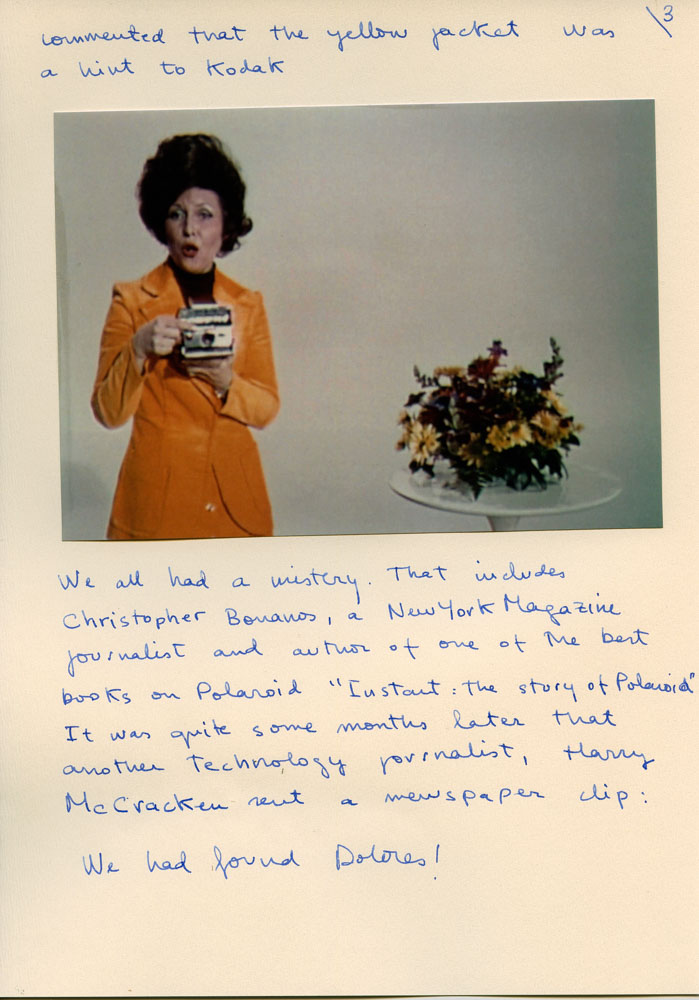 \3
commented that the yellow jacket was
a hint to Kodak
We all had a mistery. That includes
Christopher Bonanos, a New York Magazine
journalist and author of one of the best
books on Polaroid "Instant: the story of Polaroid"
It was quite some months later that
another technology journalist, Harry
McCracken sent a newspaper clip:
We had found Dolores!